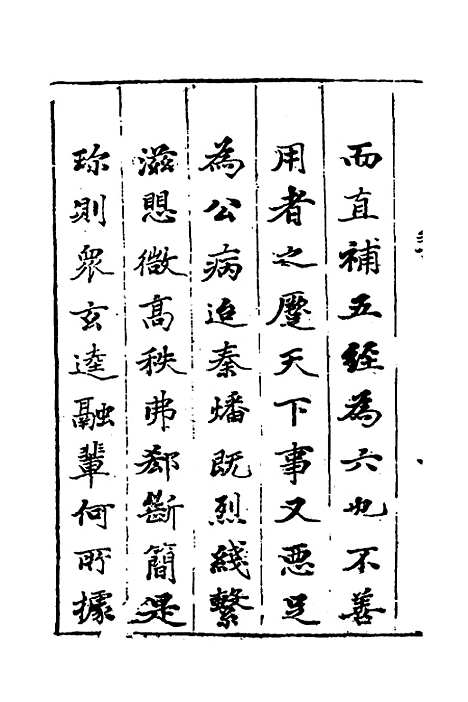 而直補五經為六也不善
用者之壓天下事又惡足
為公病迨秦燔既烈綫繫
滋思微高秩弗郄斷簡是
珍則衆玄逵融輩何所據